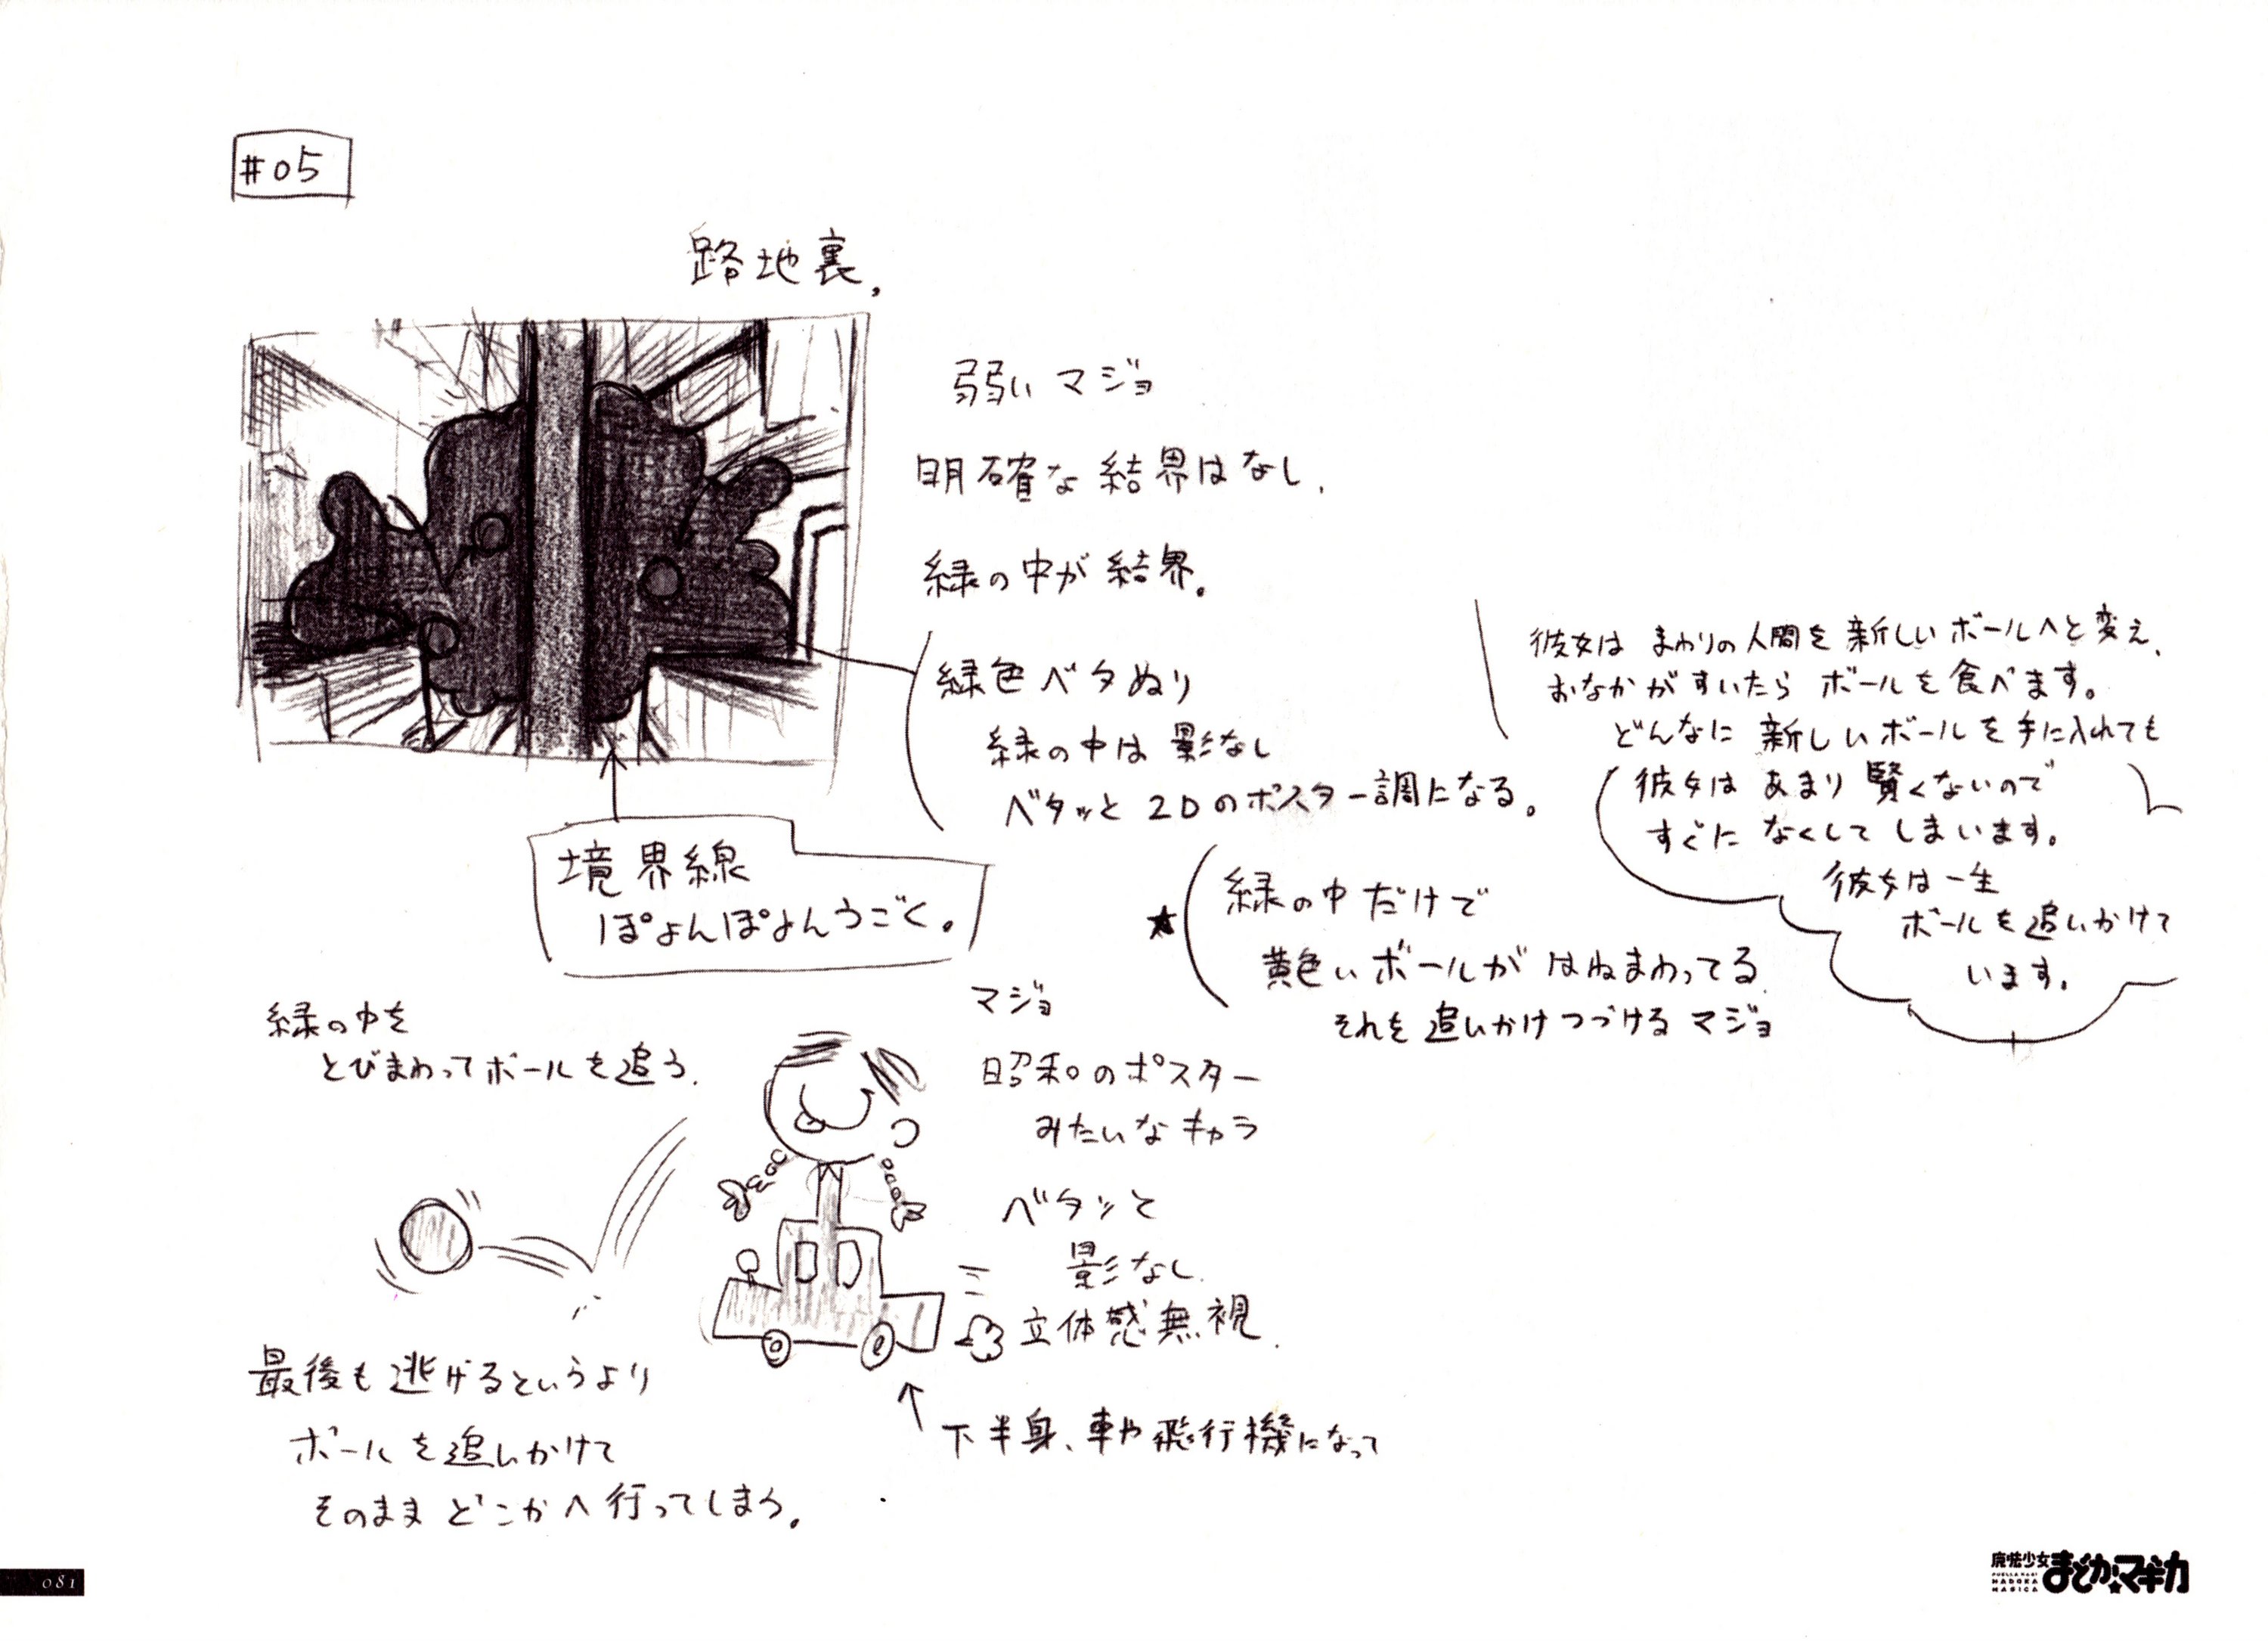 #05
路地裏、
弱い マジョ
明確な結界はなし、
緑の中が結界。
緑色ベタぬり
緑の中は影なし
ベタッと2Dのポスター調になる。
境界線
ぽよんぽよんうごく。
彼女は まわりの人間を新しいボールへと変え、
おなかがすいたら ボールを食べます。
どんなに 新しいボールを手に入れても
彼女は あまり賢くないので
すぐに なくしてしまいます。
彼女は一生
ボールを追いかけて
います。
★
緑の中だけで
黄色いボールが はねまわってる
それを追いかけつづけるマジョ
緑の中を
とびまわってボールを追う、
マジョ
昭和のポスター
みたいなキャラ
ベタッと
影なし、
立体感無視、
下半身、車や飛行機になって
最後も逃げるというより
ボールを追いかけて
そのまま どこかへ行ってしまう。
081
魔法少女
まどか★マギカ
PUELLA MAGI
MADOKA
MAGICA